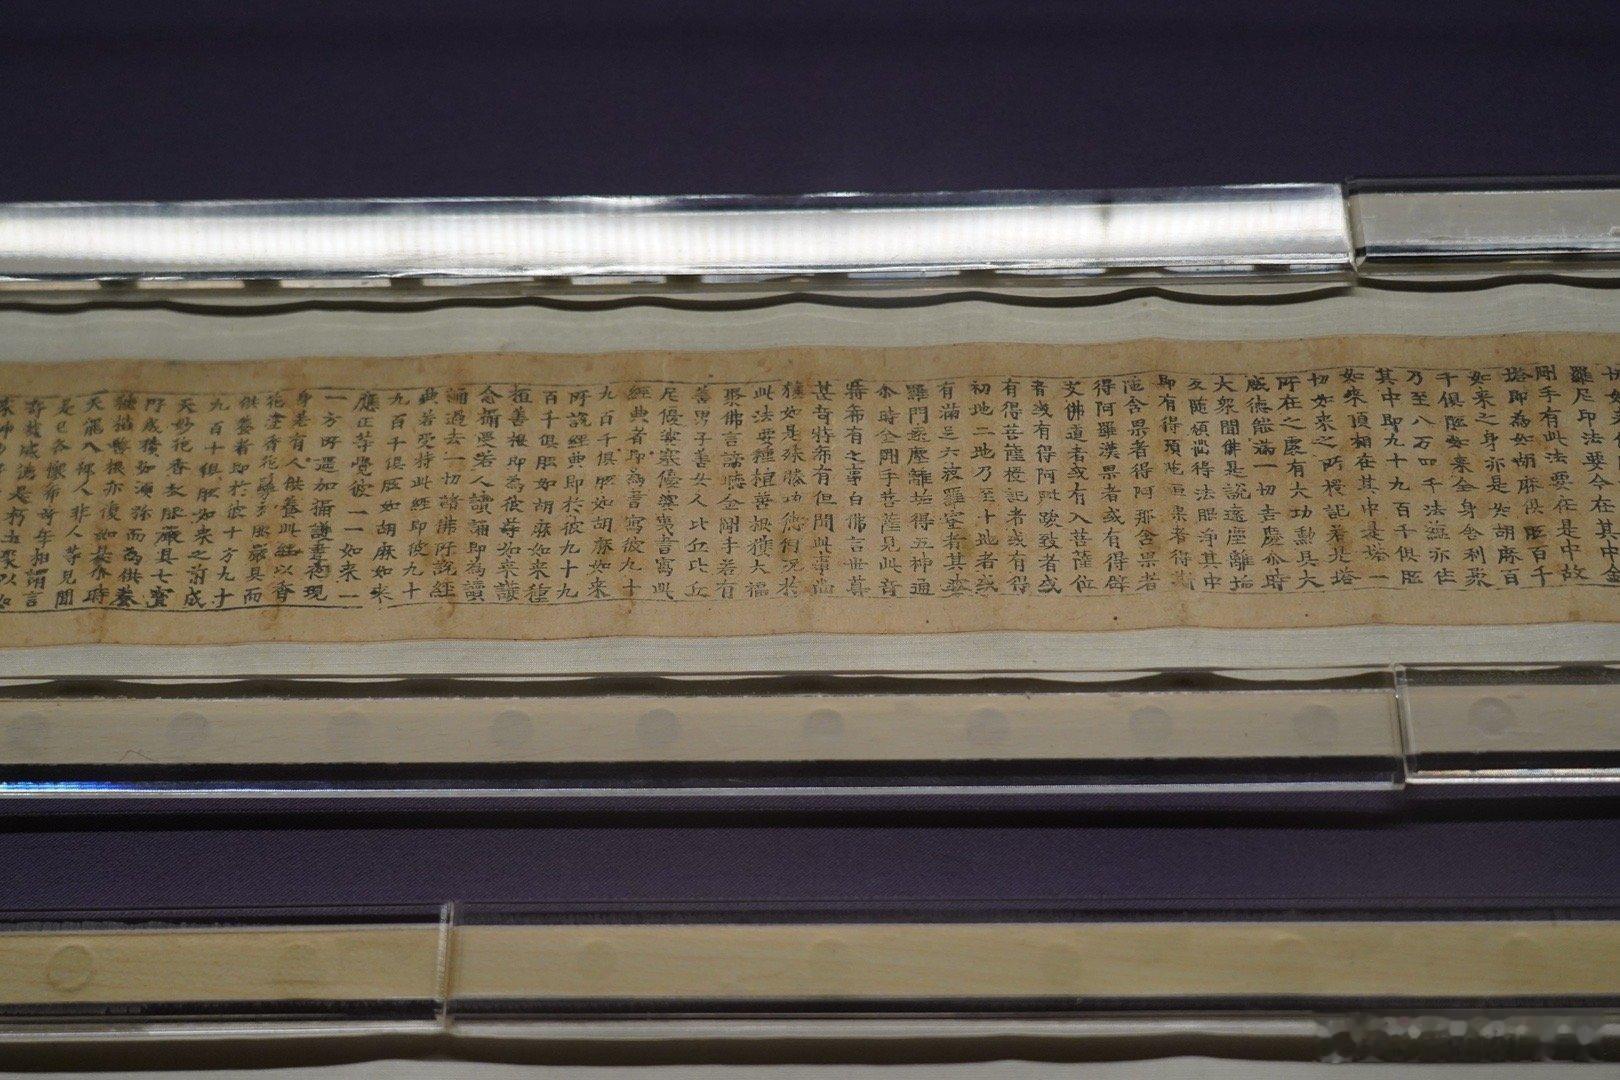 羅尼印法要今在其中金
剛手有此法要在是中故
塔即為如胡麻俱胝百千
如來之身亦是如胡麻百
千俱胝如來全身舍利聚
乃至八万四千法蘊亦住
其中即九十九百千俱胝
如來頂相在其中是塔一
切如來之所授記若是塔
所在之處有大功勳具大
威德能滿一切吉慶尒時
大衆聞佛是說遠塵離垢
及隨煩惱得法眼淨其中
即有得須陁洹果者得斯
陁含果者得阿那含果者
得阿羅漢果者或有得辟
支佛道者或有入菩薩位
者或有得阿毗跋致者或
有得菩薩授記者或有得
初地二地乃至十地者或
有滿足六波羅蜜者其婆
羅門遠塵離垢得五神通
尒時金剛手菩薩見此奇
特希有之事白佛言世尊
甚奇特希有但聞此事尚
獲如是殊勝功德何況於
此法要種植善根獲大福
聚佛言諦聽金剛手若有
善男子善女人比丘比丘
尼優婆塞優婆夷書寫此
經典者即為書寫彼九十
九百千俱胝如胡麻如來
所說經典即於彼九十九
百千俱胝如胡麻如來種
植善根即為彼等如來護
念攝受若人讀誦即為讀
誦過去一切諸佛所說經
典若受持此經即彼九十
九百千俱胝如胡麻如來
應正等覺彼一一如來一
一方所遥加攝護晝夜現
身若有人供養此經以香
花塗香花鬘衣服嚴具而
供養者即於彼十方九十
九百千俱胝如來之前成
天妙花香衣服嚴具七寶
所成積如須弥而為供養
種植善根亦復如是尒時
天龍八部人非人等見聞
是已各懷希奇互相謂言
奇哉威德是朽土聚以如